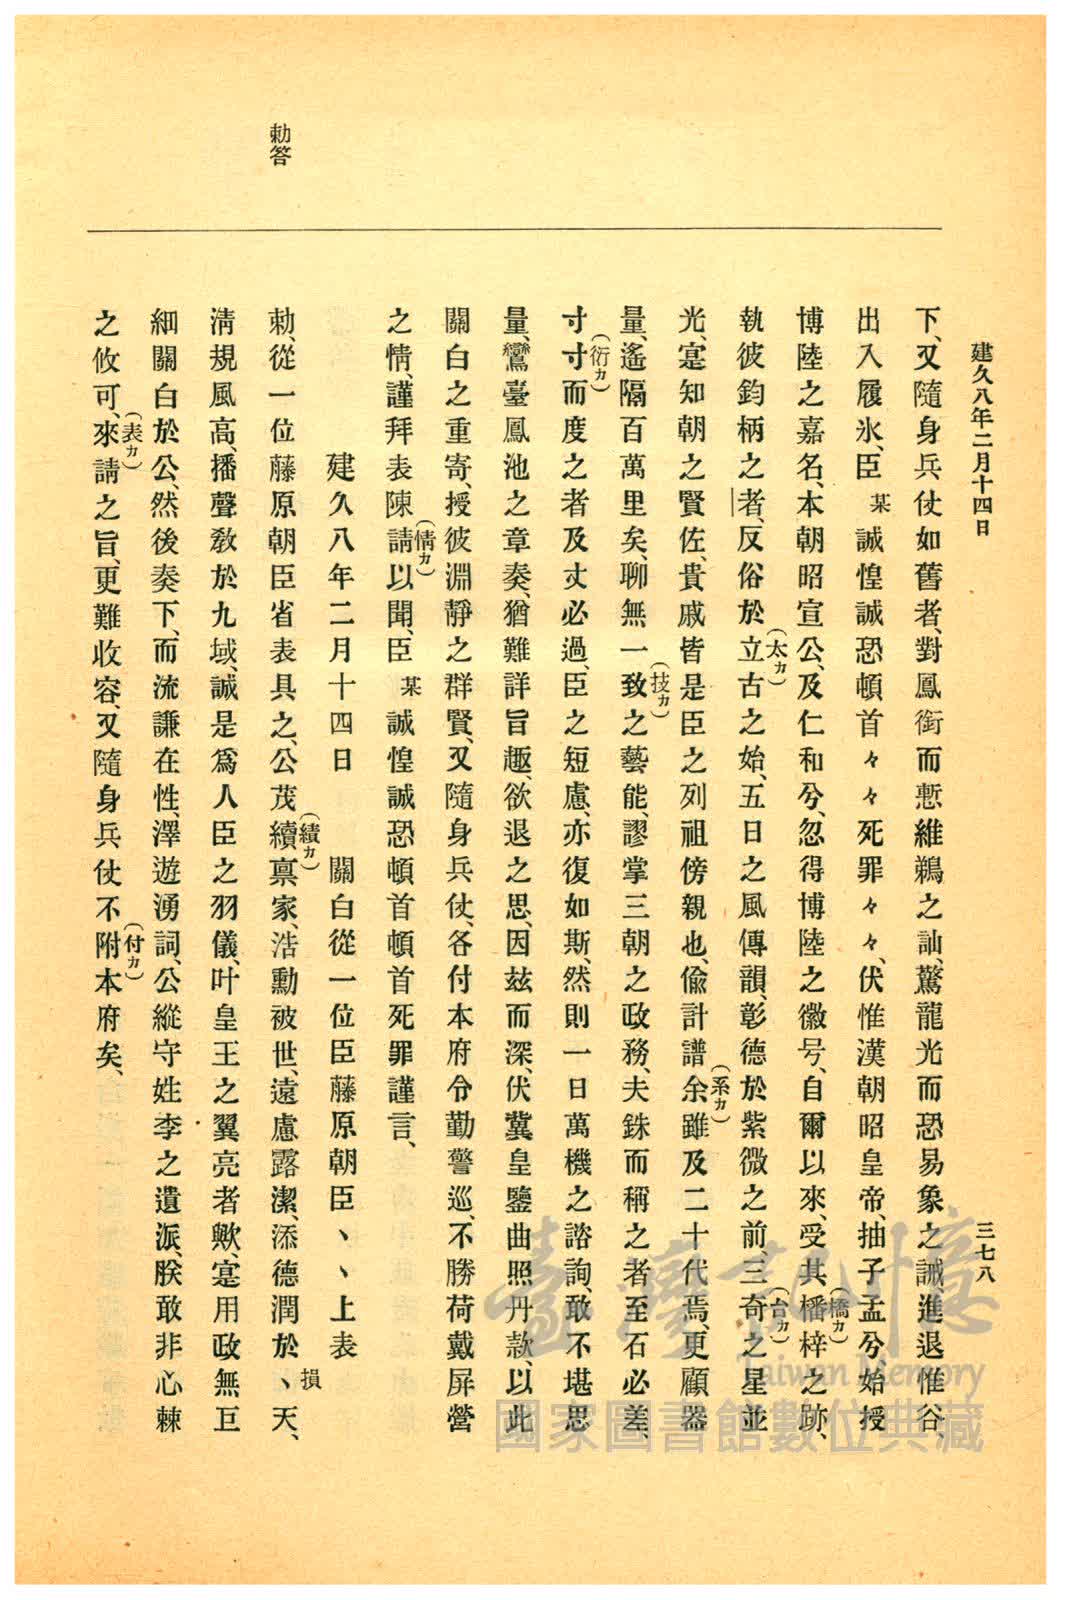 建久八年二月十四日
三七八
勅答
下、又隨身兵仗如舊者、對鳳銜而慙維鵜之訕、驚龍光而恐易象之誡、進退惟谷、
出入履氷、臣某誠惶誠恐頓首々々死罪々々、伏惟漢朝昭皇帝、抽子孟兮、始授
博陸之嘉名、本朝昭宣公、及仁和兮、忽得博陸之徽号、自爾以來、受其橎(橋カ)梓之跡、
執彼鈞柄之者、反俗於立(太カ)古之始、五日之風傳韻、彰德於紫微之前、三奇(台カ)之星並
光、寔知朝之賢佐、貴戚皆是臣之列祖傍親也、儉計譜余(系カ)雖及二十代焉、更顧器
量、遙隔百萬里矣、聊無一致(技カ)之藝能、謬掌三朝之政務、夫銖而稱之者至石必差、
寸寸(衍カ)而度之者及丈必過、臣之短慮、亦復如斯、然則一日萬機之諮詢、敢不堪思
量、鸞臺鳳池之章奏、猶難詳旨趣、欲退之思、因玆而深、伏冀皇鑒曲照丹款、以此
關白之重寄、授彼淵靜之群賢、又隨身兵仗、各付本府令勤警巡、不勝荷戴屏營
之情、謹拜表陳請(情カ)以聞、臣某誠惶誠恐頓首頓首死罪謹言、
建久八年二月十四日　關白從一位臣藤原朝臣、、上表
勅、從一位藤原朝臣省表具之、公茂續(績カ)禀家、浩勳被世、遠慮露潔、添德潤於、損天、
淸規風高、播聲敎於九域、誠是爲人臣之羽儀、叶皇王之翼亮者歟、寔用政無巨
細關白於公、然後奏下、而流謙在性、澤遊湧詞、公縱守姓李之遺派、朕敢非心棘
之攸可、來(表カ)請之旨、更難收容、又隨身兵仗不附(付カ)本府矣、
臺灣記憶
Taiwan Memory
國家圖書館數位典藏